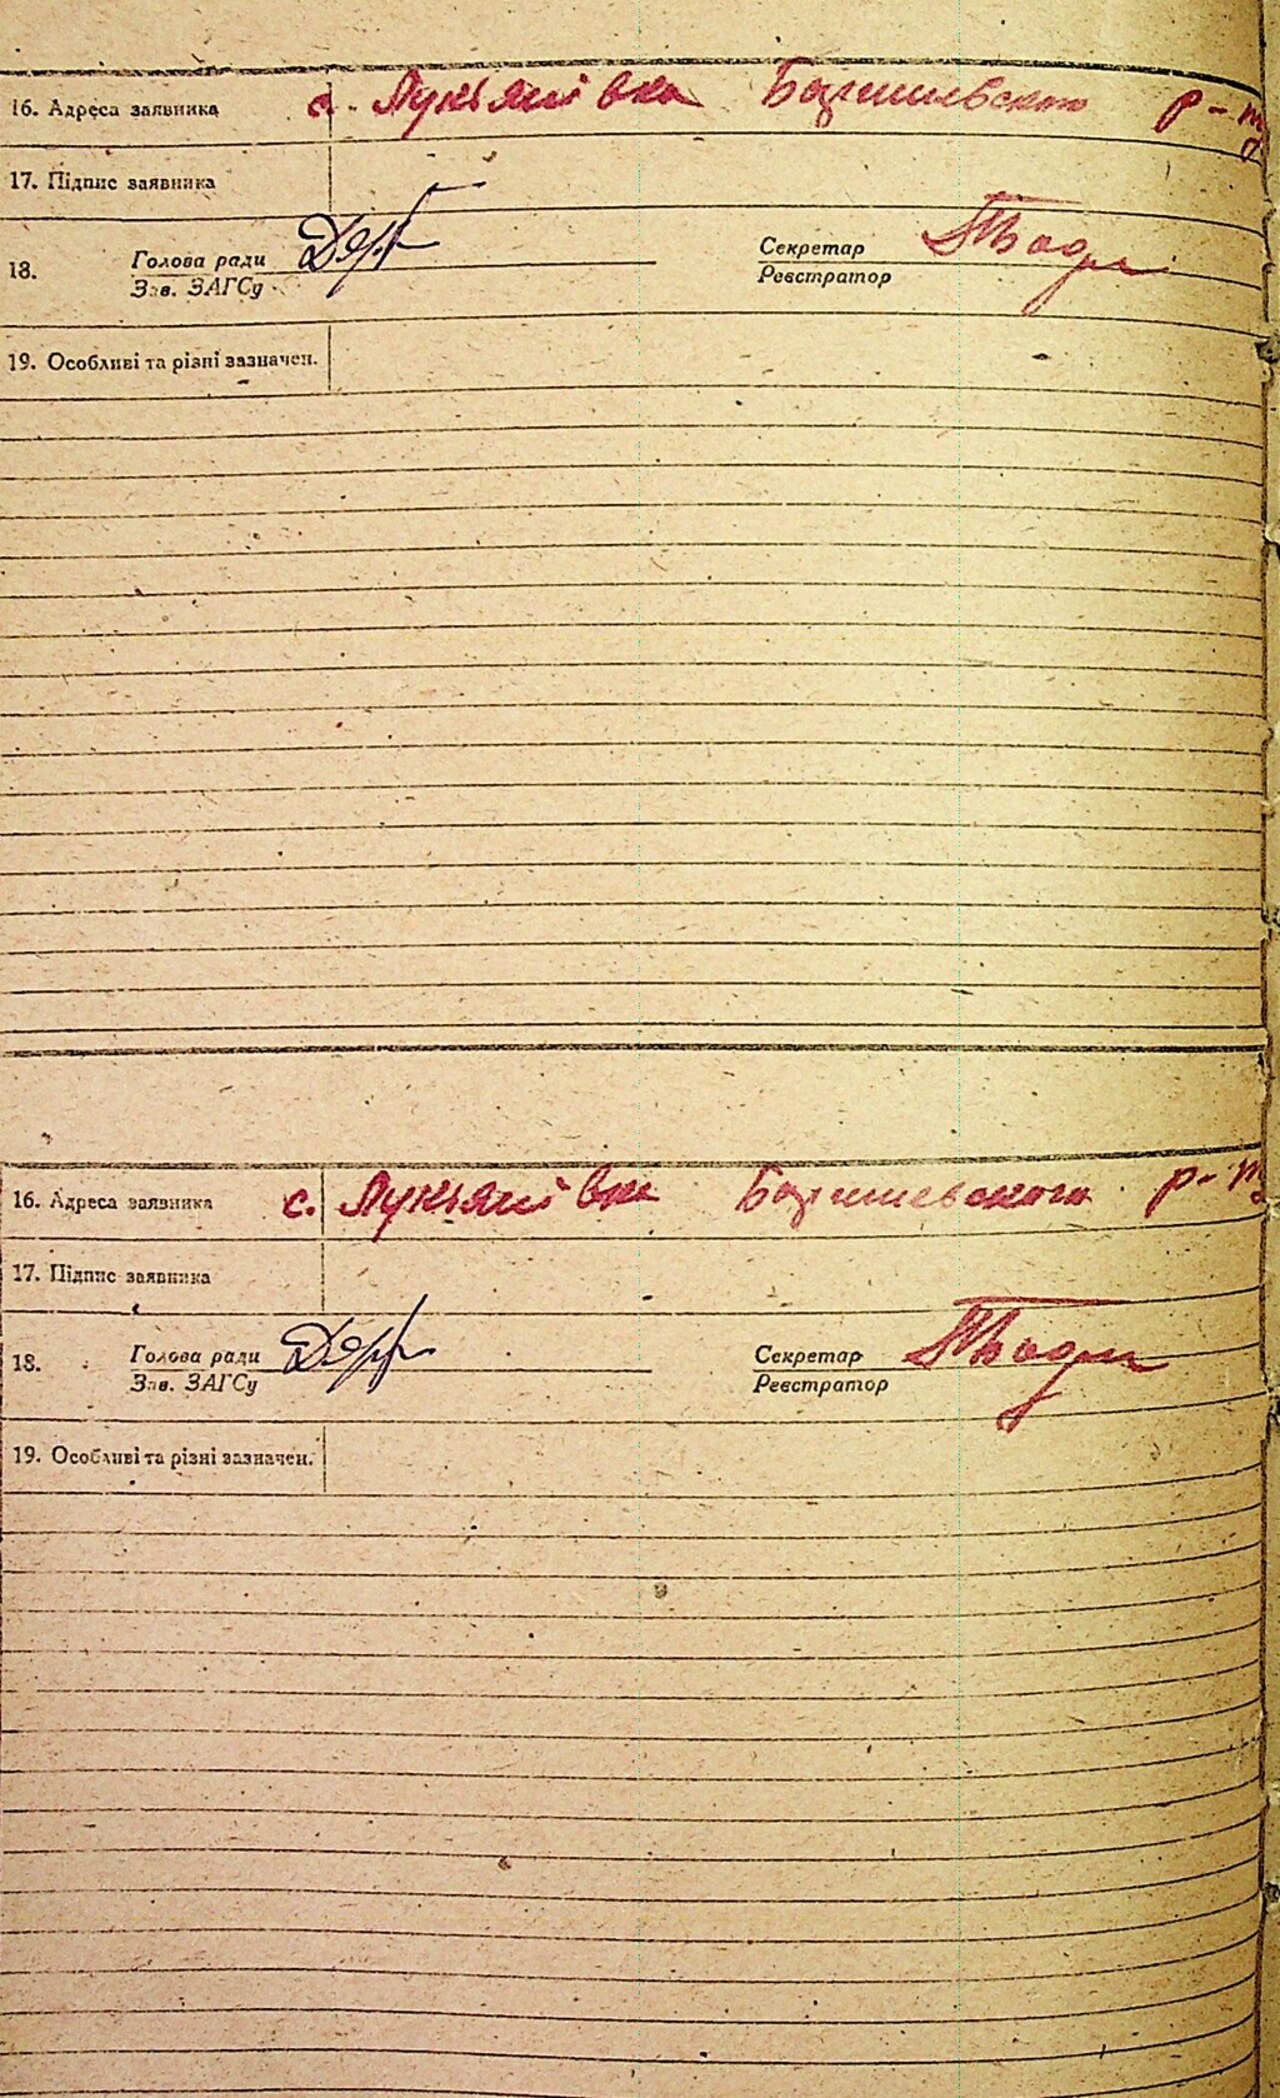 16. Адреса заявника с. Лукьянівка Баришевского р-ну
17. Підпис заявника
18. Голова ради Секретар
Зав. ЗАГСу Реєстратор
19. Особливі та різні зазначен.
16. Адреса заявника с. Лукьянівка Баришевского р-ну
17. Підпис заявника
18. Голова ради Секретар
Зав. ЗАГСу Реєстратор
19. Особливі та різні зазначен.